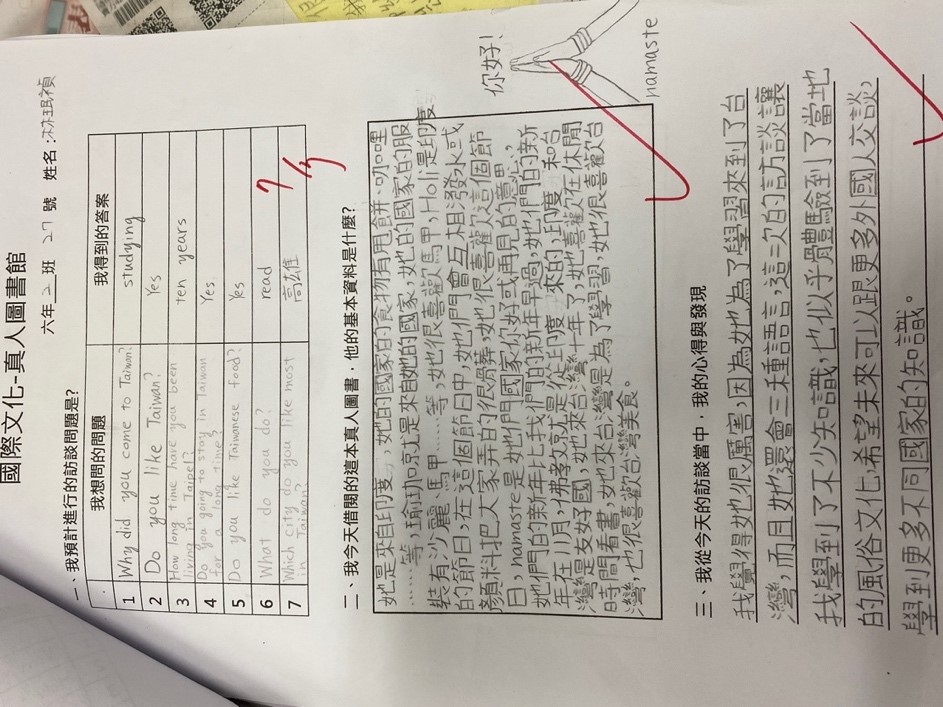 國際文化-真人圖書館
六年 2 班 27 號 姓名:
一、我預計進行的訪談問題是?
我想問的問題 我得到的答案
1 Why did you come to Taiwan? studying
2 Do you like Taiwan? Yes
3 How long time have you been living in Taipei? ten years
4 Do you going to stay in Taiwan for a long time? Yes
5 Do you like Taiwanese food? Yes
6 What do you do? read
7 Which city do you like most in Taiwan? 高雄
7/13
二、我今天借閱的這本真人圖書,他的基本資料是什麼?
她是來自印度,她的國家的食物有甩餅、咖哩
……等,瑜珈就是來自她的國家,她的國家的服
裝有沙麗、馬甲……等,她很喜歡馬甲,Holi是印度
的節日,在這個節日中,她們會互相潑水或
顏料把大家弄的很髒,她很喜歡這個節
日,namaste是她們國家你好或再見的意思,
她們的新年比我們的新年早過,她們的新
年在11月,佛教就是從印度來的,印度和台
灣是友好國,她來台灣十年了,她喜歡在休閒
時間看書,她來台灣是為了學習,她很喜歡台
灣,也很喜歡台灣美食。
你好!
namaste
三、我從今天的訪談當中,我的心得與發現
我覺得她很厲害,因為她為了學習來到了台
灣,而且她還會三種語言,這次的訪談讓
我學到了不少知識,也似乎體驗到了當地
的風俗文化,希望未來可以跟更多外國人交談,
學到更多不同國家的知識。